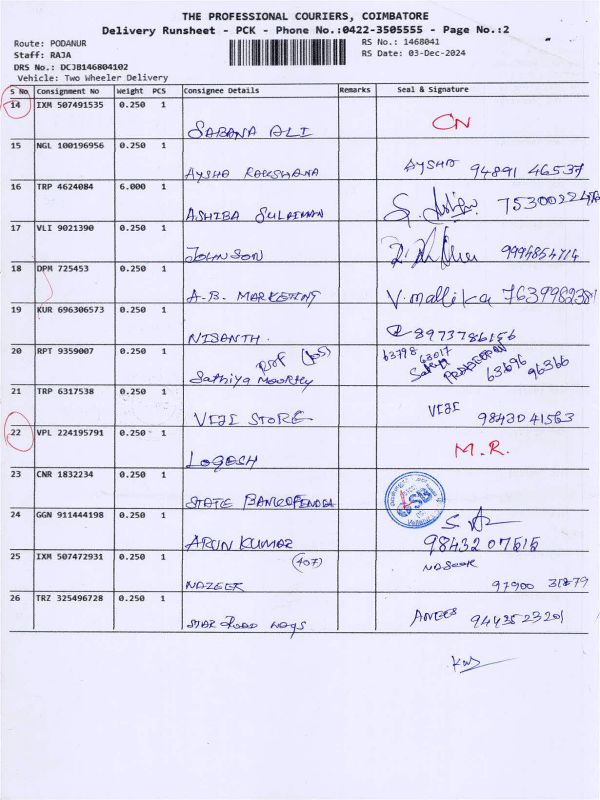 THE PROFESSIONAL COURIERS, COIMBATORE
Delivery Runsheet - PCK - Phone No.:0422-3505555 - Page No.:2
Route: PODANUR
RS No.: 1468041
Staff: RAJA
RS Date: 03-Dec-2024
DRS No.: DCJB146804102
Vehicle: Two Wheeler Delivery
S No Consignment No Weight PCS Consignee Details Remarks Seal & Signature
14 IXM 507491535 0.250 1
SABANA ALI CN
15 NGL 100196956 0.250 1
AYSHA RAKSHANA AYSHA 94891 46537
16 TRP 4624084 6.000 1
ASHIBA SULAIMAN
17 VLI 9021390 0.250 1
JOHNSON 9994854714
18 DPM 725453 0.250 1
A.B. MARKETING V.mallika 7639982381
19 KUR 696306573 0.250 1
NISANTH. 8973786156
20 RPT 9359007 0.250 1
Sathiya Moorthy 63798 63017 63696 96366
21 TRP 6317538 0.250 1
VIJI STORE VIJI 98430 41563
22 VPL 224195791 0.250 1
LOGESH M.R.
23 CNR 1832234 0.250 1
STATE BANKOFINDIA
24 GGN 911444198 0.250 1
ARUN KUMAR 98432 07515
25 IXM 507472931 0.250 1
(407)
NAZEER NASEER
26 TRZ 325496728 0.250 1
STAR ROAD ways ANEES 9443523201